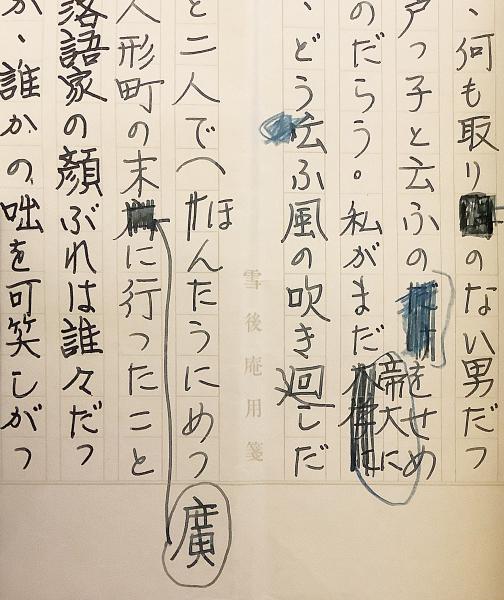 、何も取りのない男だつ
戸つ子と云ふのをせめ
のだらう。私がまだ帝大に
、どう云ふ風の吹き廻しだ
雪後庵用箋
と二人で（ほんたうにめつ
人形町の末廣に行つたこと
落語家の顔ぶれは誰々だつ
か、誰かの咄を可笑しがつ